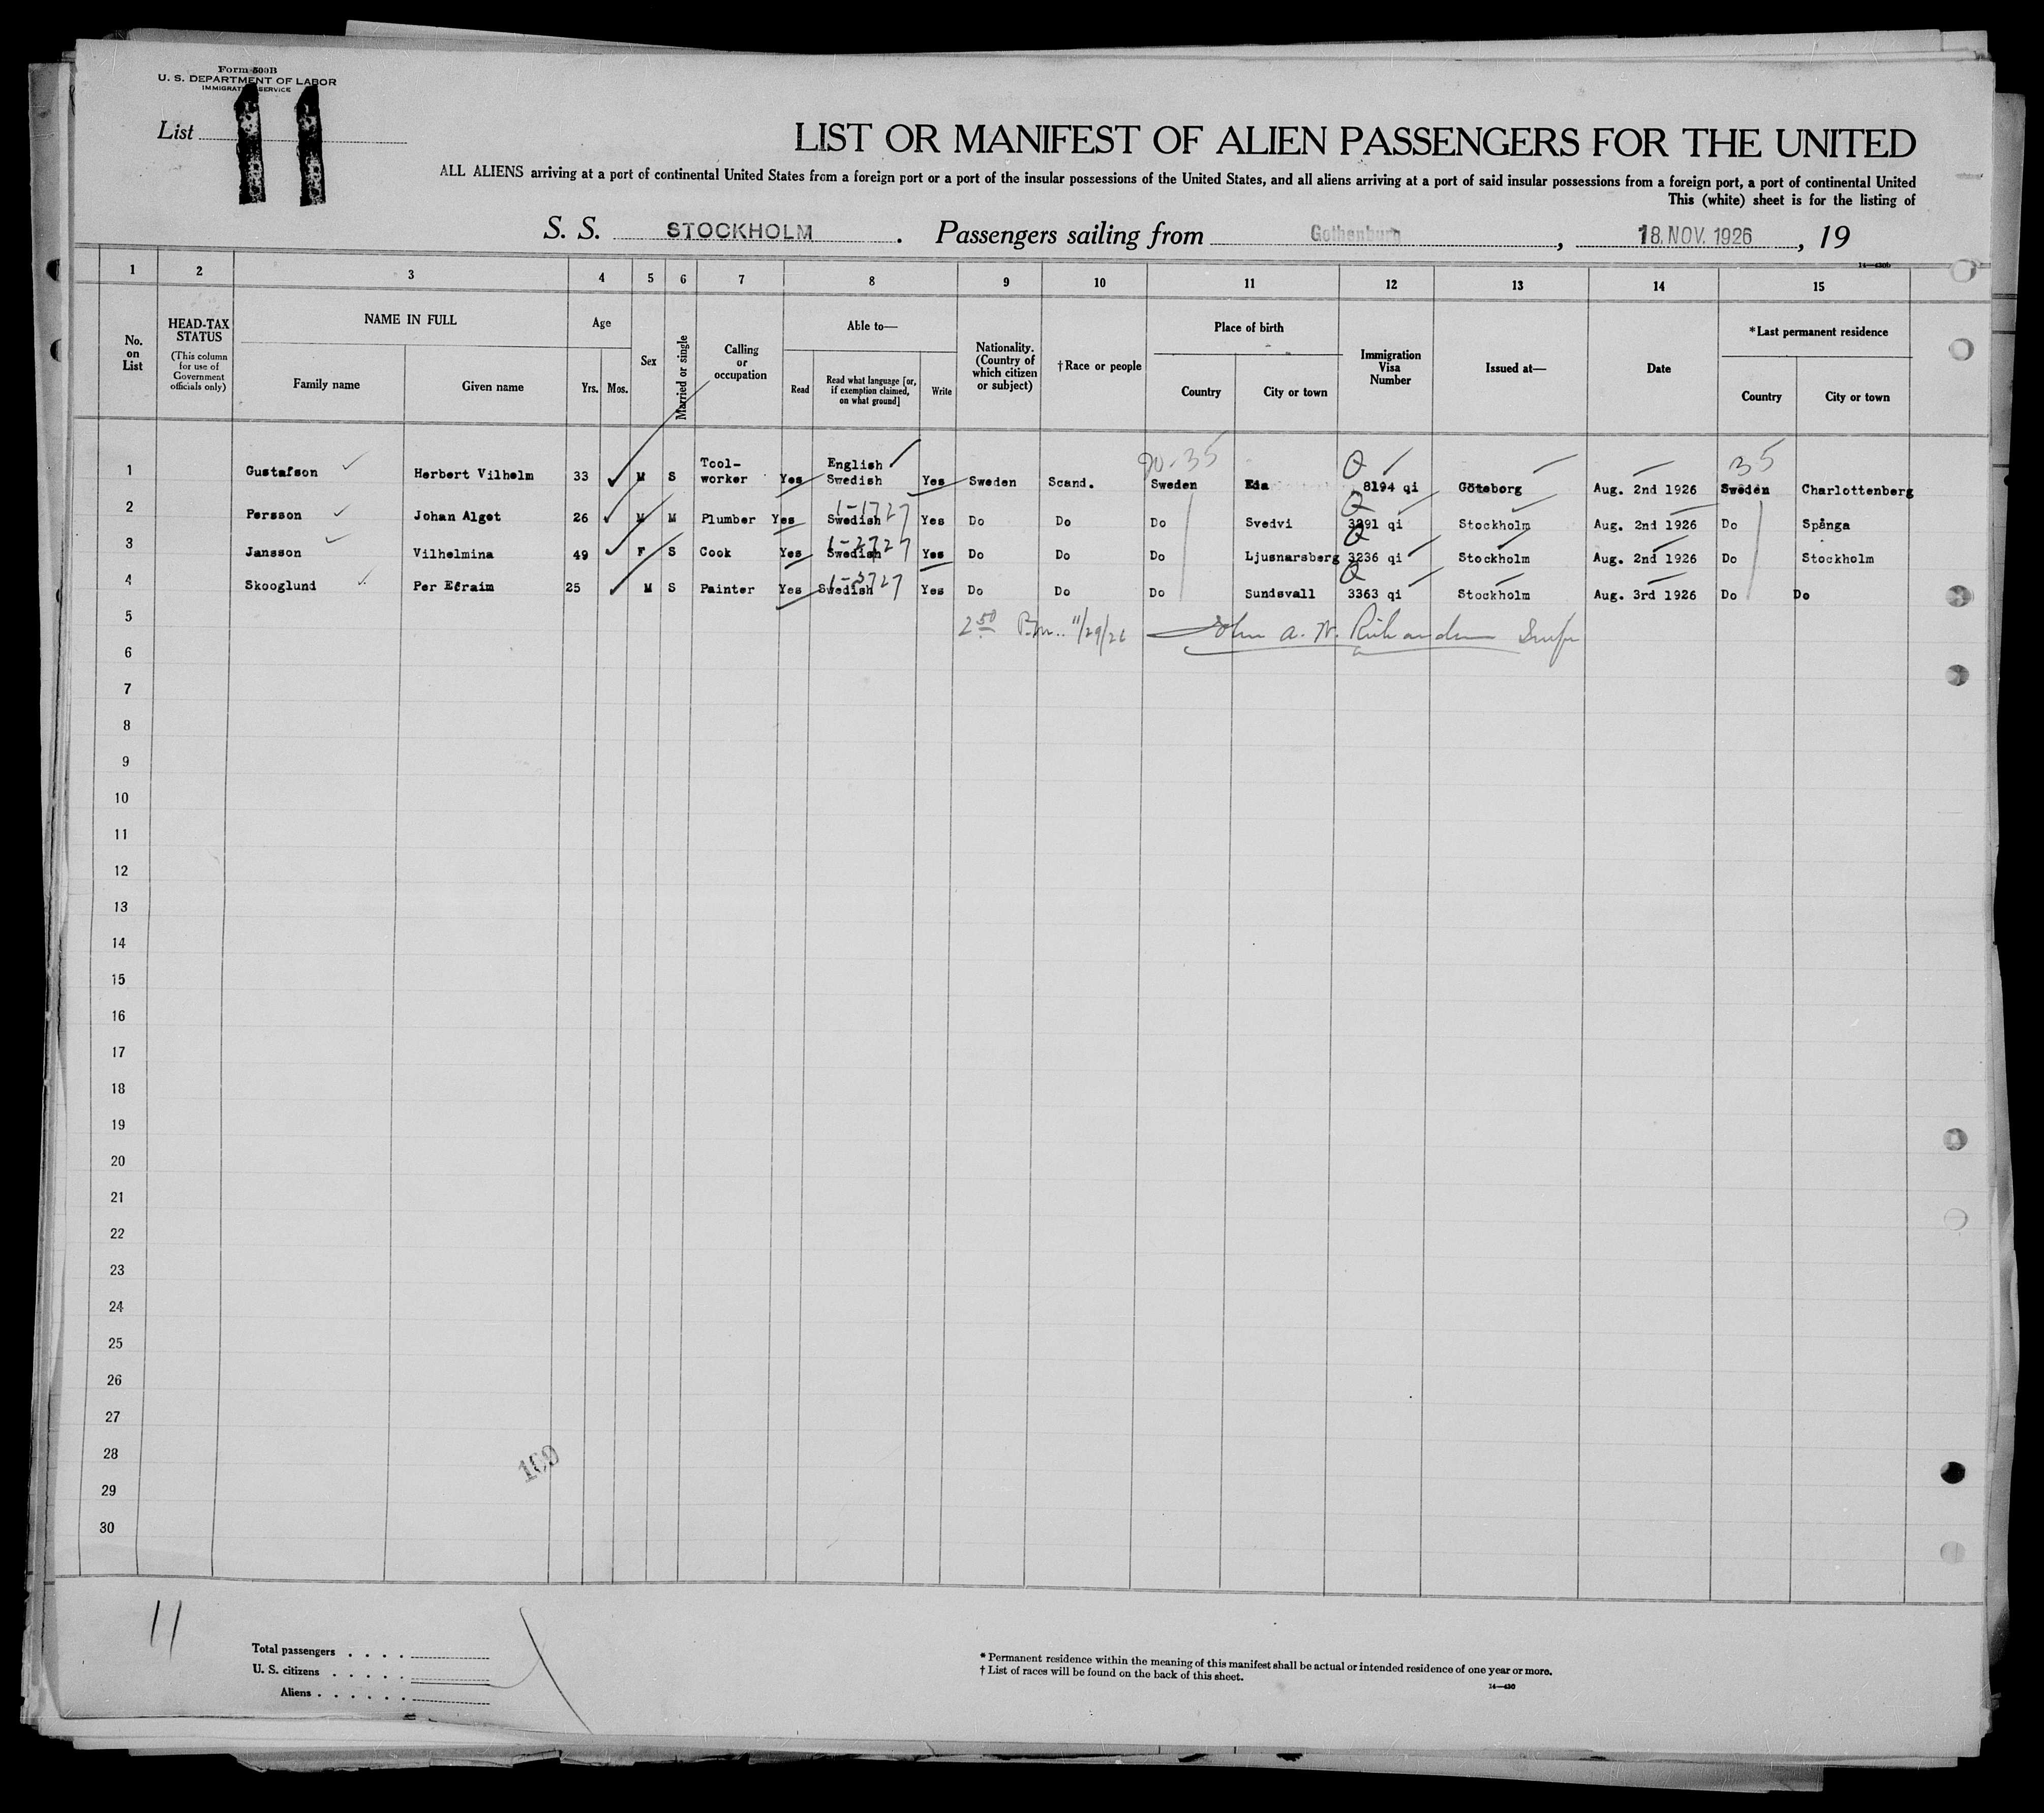 Form 500B
U. S. DEPARTMENT OF LABOR
IMMIGRATION SERVICE
List 11
LIST OR MANIFEST OF ALIEN PASSENGERS FOR THE UNITED
ALL ALIENS arriving at a port of continental United States from a foreign port or a port of the insular possessions of the United States, and all aliens arriving at a port of said insular possessions from a foreign port, a port of continental United
This (white) sheet is for the listing of
S. S. STOCKHOLM . Passengers sailing from Gothenburg , 18. NOV. 1926 , 19
14—430b
1 2 3 4 5 6 7 8 9 10 11 12 13 14 15
No. on List
HEAD-TAX STATUS
(This column for use of Government officials only)
NAME IN FULL
Family name Given name
Age
Yrs. Mos.
Sex
Married or single
Calling or occupation
Able to—
Read
Read what language [or, if exemption claimed, on what ground]
Write
Nationality. (Country of which citizen or subject)
†Race or people
Place of birth
Country City or town
Immigration Visa Number
Issued at—
Date
*Last permanent residence
Country City or town
90-35 35
1 Gustafson Herbert Vilhelm 33 M S Tool-worker Yes English Swedish Yes Sweden Scand. Sweden Eda Q 8194 qi Göteborg Aug. 2nd 1926 Sweden Charlottenberg
2 Persson Johan Alget 26 M M Plumber Yes Swedish Yes Do Do Do Svedvi Q 3291 qi Stockholm Aug. 2nd 1926 Do Spånga
3 Jansson Vilhelmina 49 F S Cook Yes Swedish Yes Do Do Do Ljusnarsberg Q 3236 qi Stockholm Aug. 2nd 1926 Do Stockholm
4 Skooglund Per Efraim 25 M S Painter Yes Swedish Yes Do Do Do Sundsvall Q 3363 qi Stockholm Aug. 3rd 1926 Do Do
5 2 50 11/29/26 John A. W. Richardson
6
7
8
9
10
11
12
13
14
15
16
17
18
19
20
21
22
23
24
25
26
27
28
100
29
30
11
Total passengers . . . .
U. S. citizens . . . . .
Aliens . . . . . .
* Permanent residence within the meaning of this manifest shall be actual or intended residence of one year or more.
† List of races will be found on the back of this sheet.
14—430